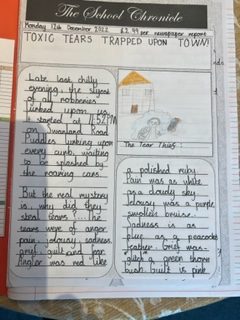 The School Chronicle
Monday 12th December 2022 £2.99 per newspaper report
TOXIC TEARS TRAPPED UPON TOWN!
Late last chilly
evening, the
of all robberies
upon us
started at 11:52PM
on Swanland Road
Puddles lurking upon
every curb waiting
to be splashed by
the roaring cars.
But the real mystery
is why did they
steal tears... The
tears were of anger
pain, jelousy, sadness,
grief, guilt and fear.
Anger was red like
The Tear Thief!
a polished ruby.
Pain was as white
as a cloudy sky.
Jelousy was a purple
swollen bruise.
Sadness is as
blue as a peacocks
feather. Grief was
a green thorn
bush. Guilt is pink